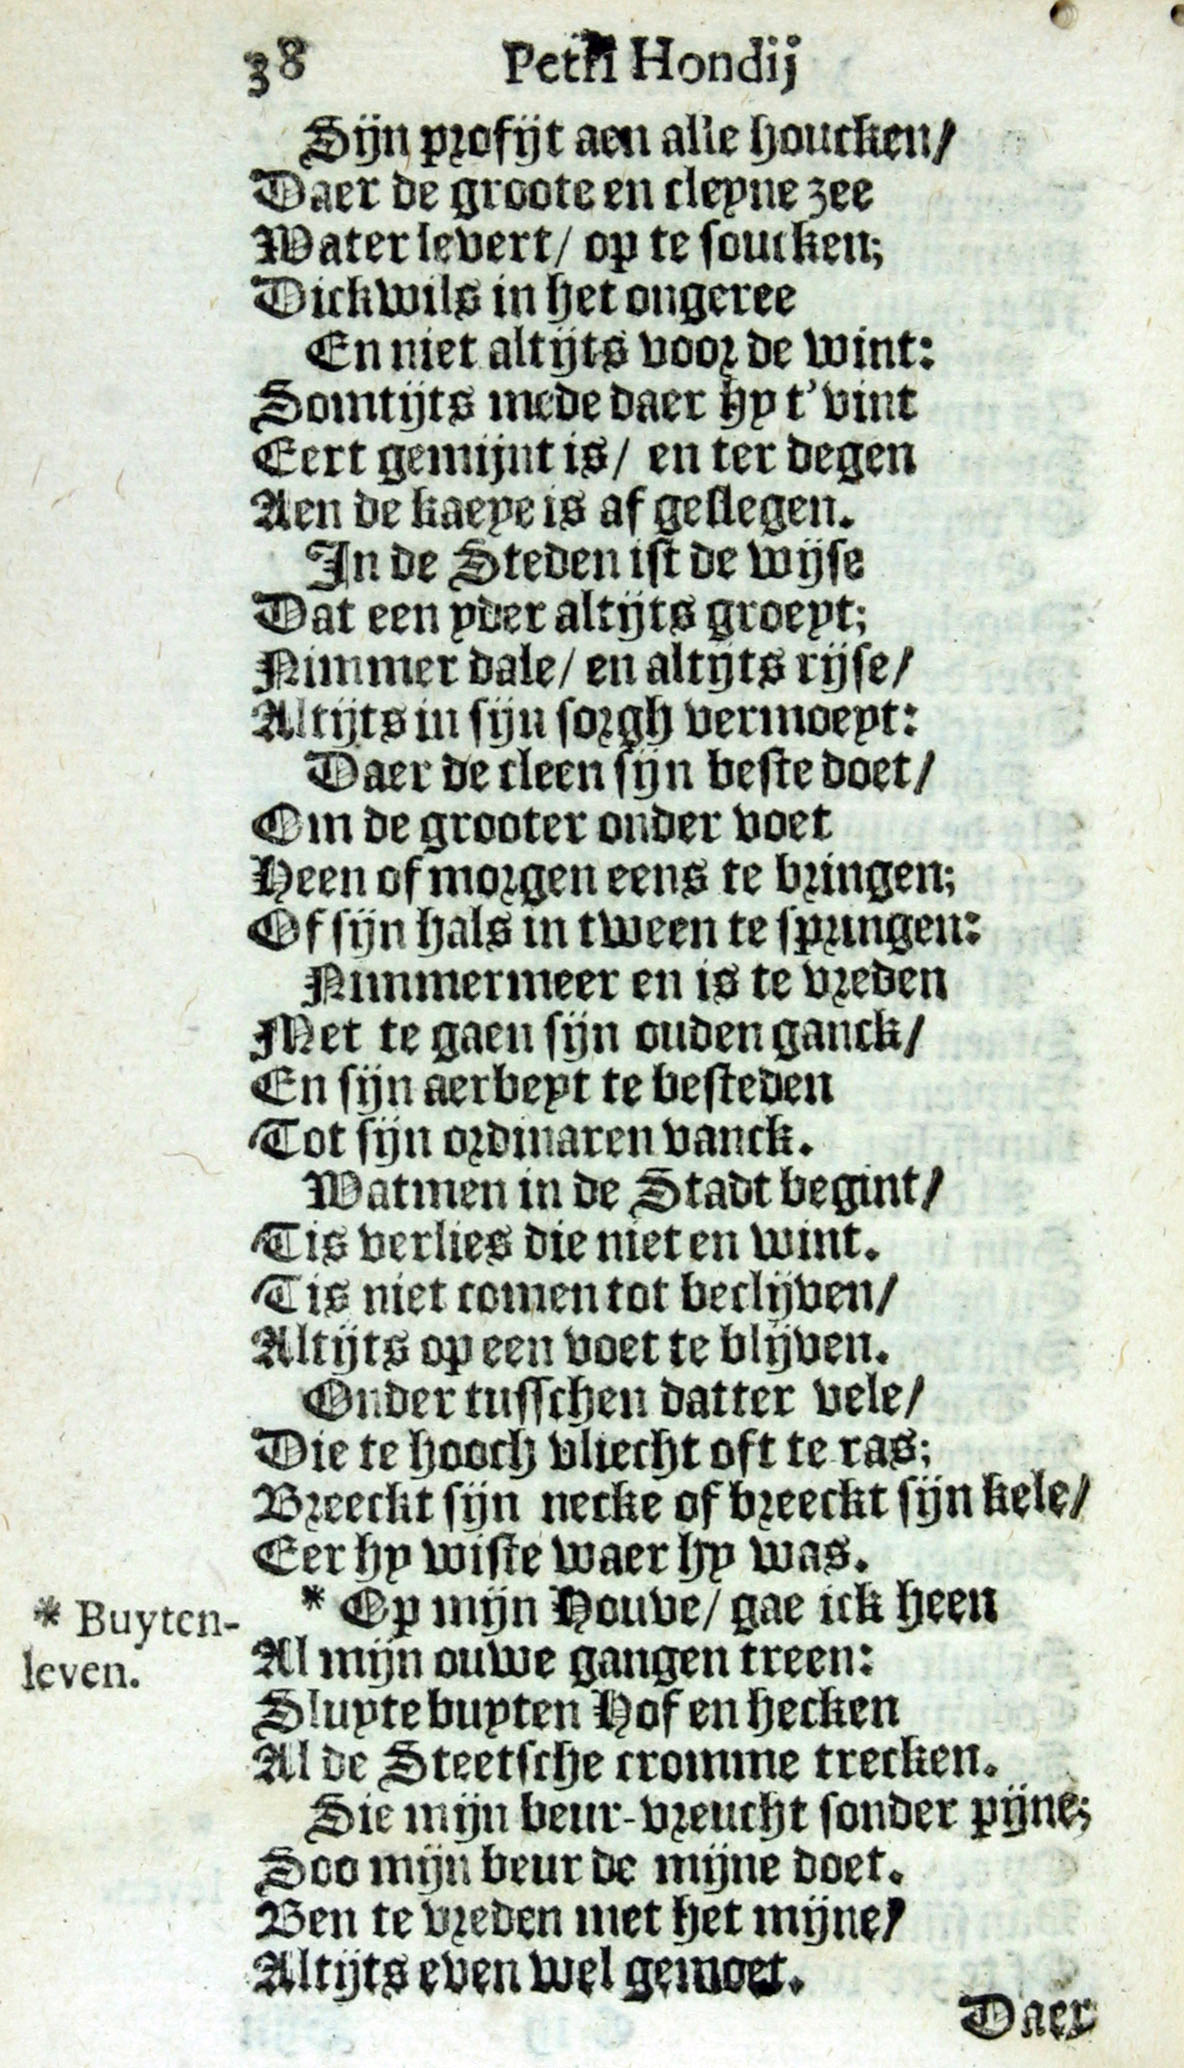 38 Petri Hondij
Sijn profijt aen alle houcken/
Daer de groote en cleyne zee
Water levert/ op te soucken;
Dickwils in het ongeree
En niet altijts voor de wint:
Somtijts mede daer hy t'vint
Eert gemijnt is/ en ter degen
Aen de kaeye is af geslegen.
In de Steden ist de wijse
Dat een yder altijts groeyt;
Nimmer dale/ en altijts rijse/
Altijts in sijn sorgh vermoeyt:
Daer de cleen sijn beste doet/
Om de grooter onder voet
Heen of morgen eens te bringen;
Of sijn hals in tween te springen:
Nimmermeer en is te vreden
Met te gaen sijn ouden ganck/
En sijn aerbeyt te besteden
Tot sijn ordinaren vanck.
Watmen in de Stadt begint/
Tis verlies die niet en wint.
Tis niet comen tot beclijven/
Altijts op een voet te blijven.
Onder tusschen datter vele/
Die te hooch vliecht oft te ras;
Breeckt sijn necke of breeckt sijn kele/
Eer hy wiste waer hy was.
* Op mijn Houve/ gae ick heen
* Buyten-
leven.
Al mijn ouwe gangen treen:
Sluyte buyten Hof en hecken
Al de Steetsche cromme trecken.
Sie mijn beur-vreucht sonder pijne;
Soo mijn beur de mijne doet.
Ben te vreden met het mijne/
Altijts even wel gemoet.
Daer